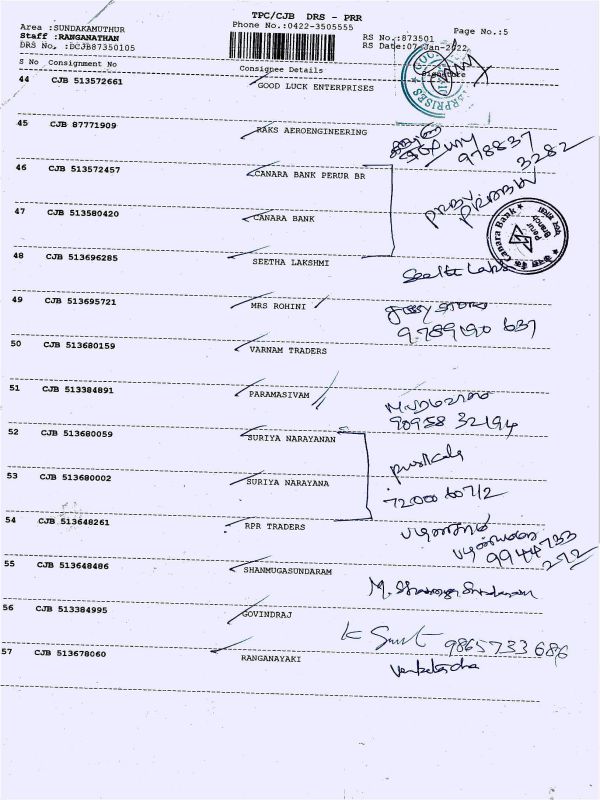 TPC/CJB DRS - PRR
Area :SUNDAKAMUTHUR
Phone No.:0422-3505555
Page No.:5
Staff :RANGANATHAN
RS No.:873501
DRS No. :DCJB87350105
RS Date:07-Jan-2022
S No Consignment No Consignee Details Signature
44 CJB 513572661 GOOD LUCK ENTERPRISES
45 CJB 87771909 RAKS AEROENGINEERING
978837
3282
46 CJB 513572457 CANARA BANK PERUR BR
47 CJB 513580420 CANARA BANK
Canara Bank
Perur
Branch
48 CJB 513696285 SEETHA LAKSHMI
49 CJB 513695721 MRS ROHINI
9789190 637
50 CJB 513680159 VARNAM TRADERS
51 CJB 513384891 PARAMASIVAM
90958 32194
52 CJB 513680059 SURIYA NARAYANAN
53 CJB 513680002 SURIYA NARAYANA
72000 60712
54 CJB 513648261 RPR TRADERS
9944 733
272
55 CJB 513648486 SHANMUGASUNDARAM
56 CJB 513384995 GOVINDRAJ
9865733686
57 CJB 513678060 RANGANAYAKI